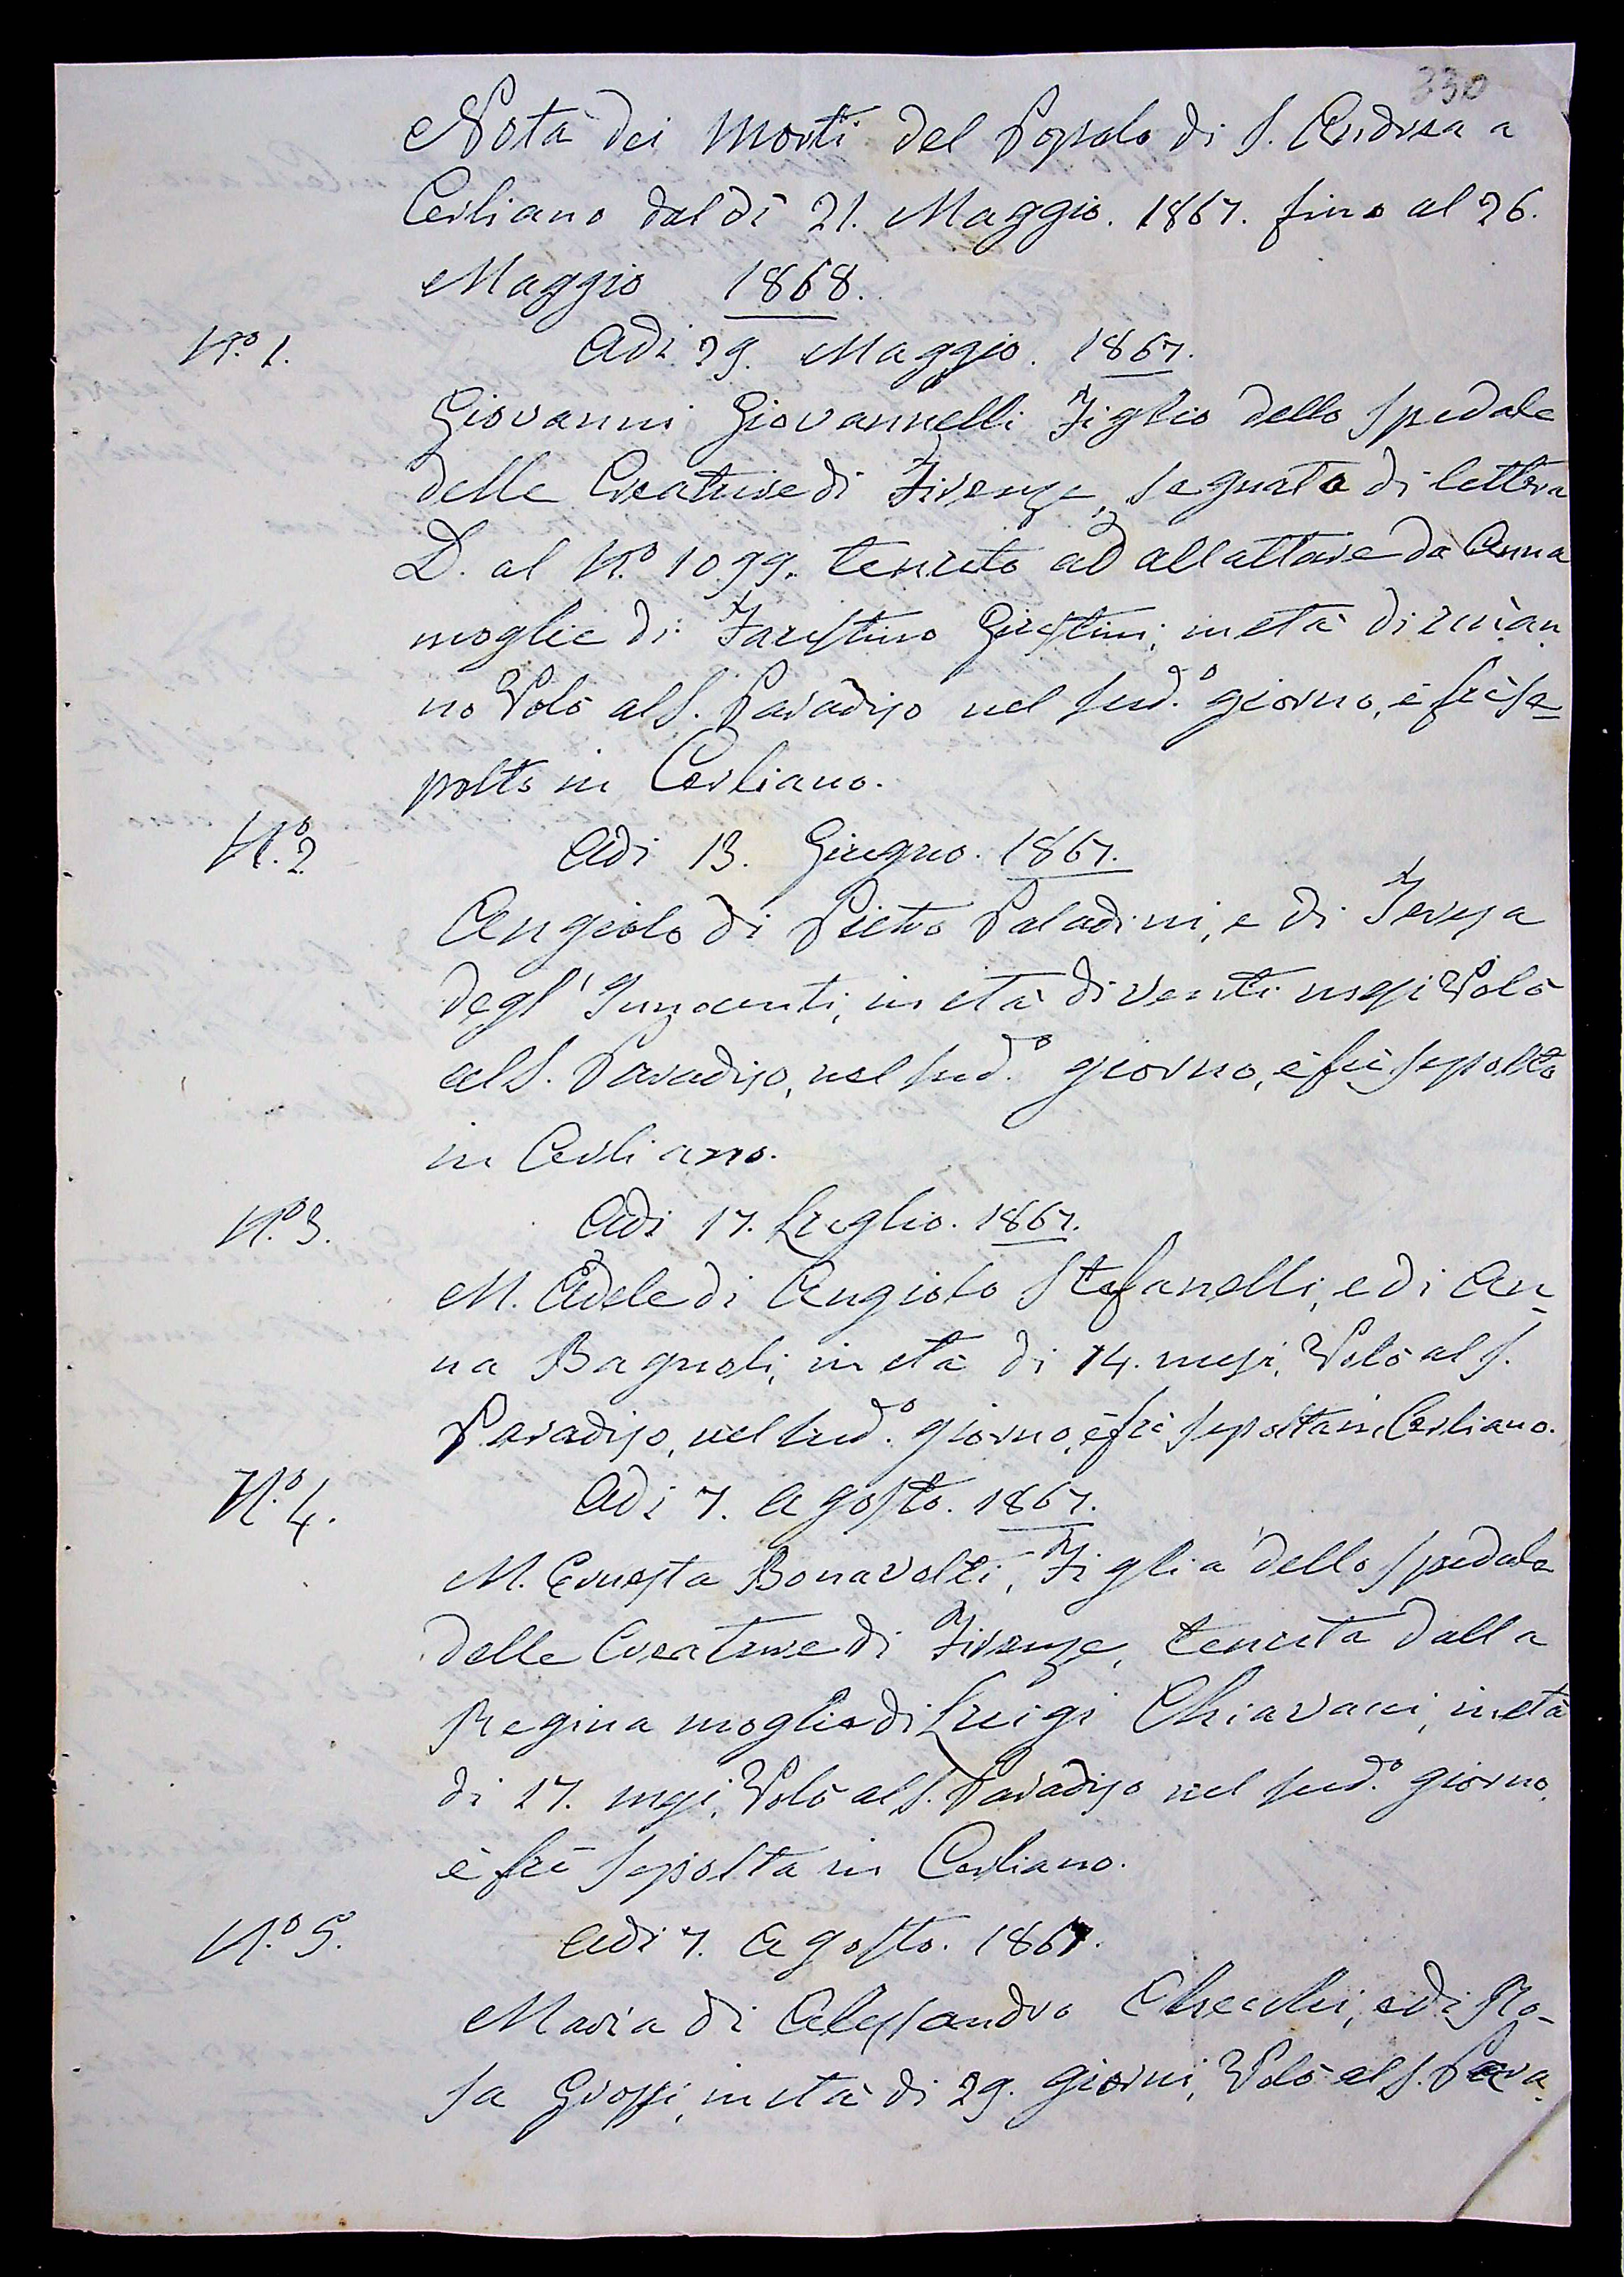 330
Nota dei Morti del Popolo di S. Andrea a
Cerliano dal dì 21. Maggio. 1867. fino al 26.
Maggio 1868.
N.º 1. Adì 29. Maggio. 1867.
Giovanni Giovannelli Figlio dello Spedale
delle Creature di Firenze, segnato di lettera
D. al N.º 1099. tenuto ad allattare da Anna
moglie di Faustino Giustini, in età di un'an
no Volò al S. Paradiso nel sud.º giorno, è fù se=
polto in Cerliano.
N.º 2. Adì 13. Giugno. 1867.
Angiolo di Pietro Paladini, e di Teresa
degl'Innocenti, in età di venti mesi Volò
al S. Paradiso, nel sud.º giorno, è fù sepolto
in Cerliano.
N.º 3. Adì 17. Luglio. 1867.
M. Adele di Angiolo Stefanelli, e di An=
na Bagnoli, in età di 14. mesi, Volò al S.
Paradiso, nel sud.º giorno, è fù sepolta in Cerliano.
N.º 4. Adì 7. Agosto. 1867.
M. Ernesta Bonavolti, Figlia dello Spedale
delle Creature di Firenze, tenuta dalla
Regina moglie di Luigi Chiavacci, in età
di 17. mesi, Volò al S. Paradiso nel sud.º giorno,
è fù sepolta in Cerliano.
N.º 5. Adì 7. Agosto. 1867.
Maria di Alessandro Checchi, e di Ro-
sa Grossi, in età di 29. giorni, Volò al S. Para